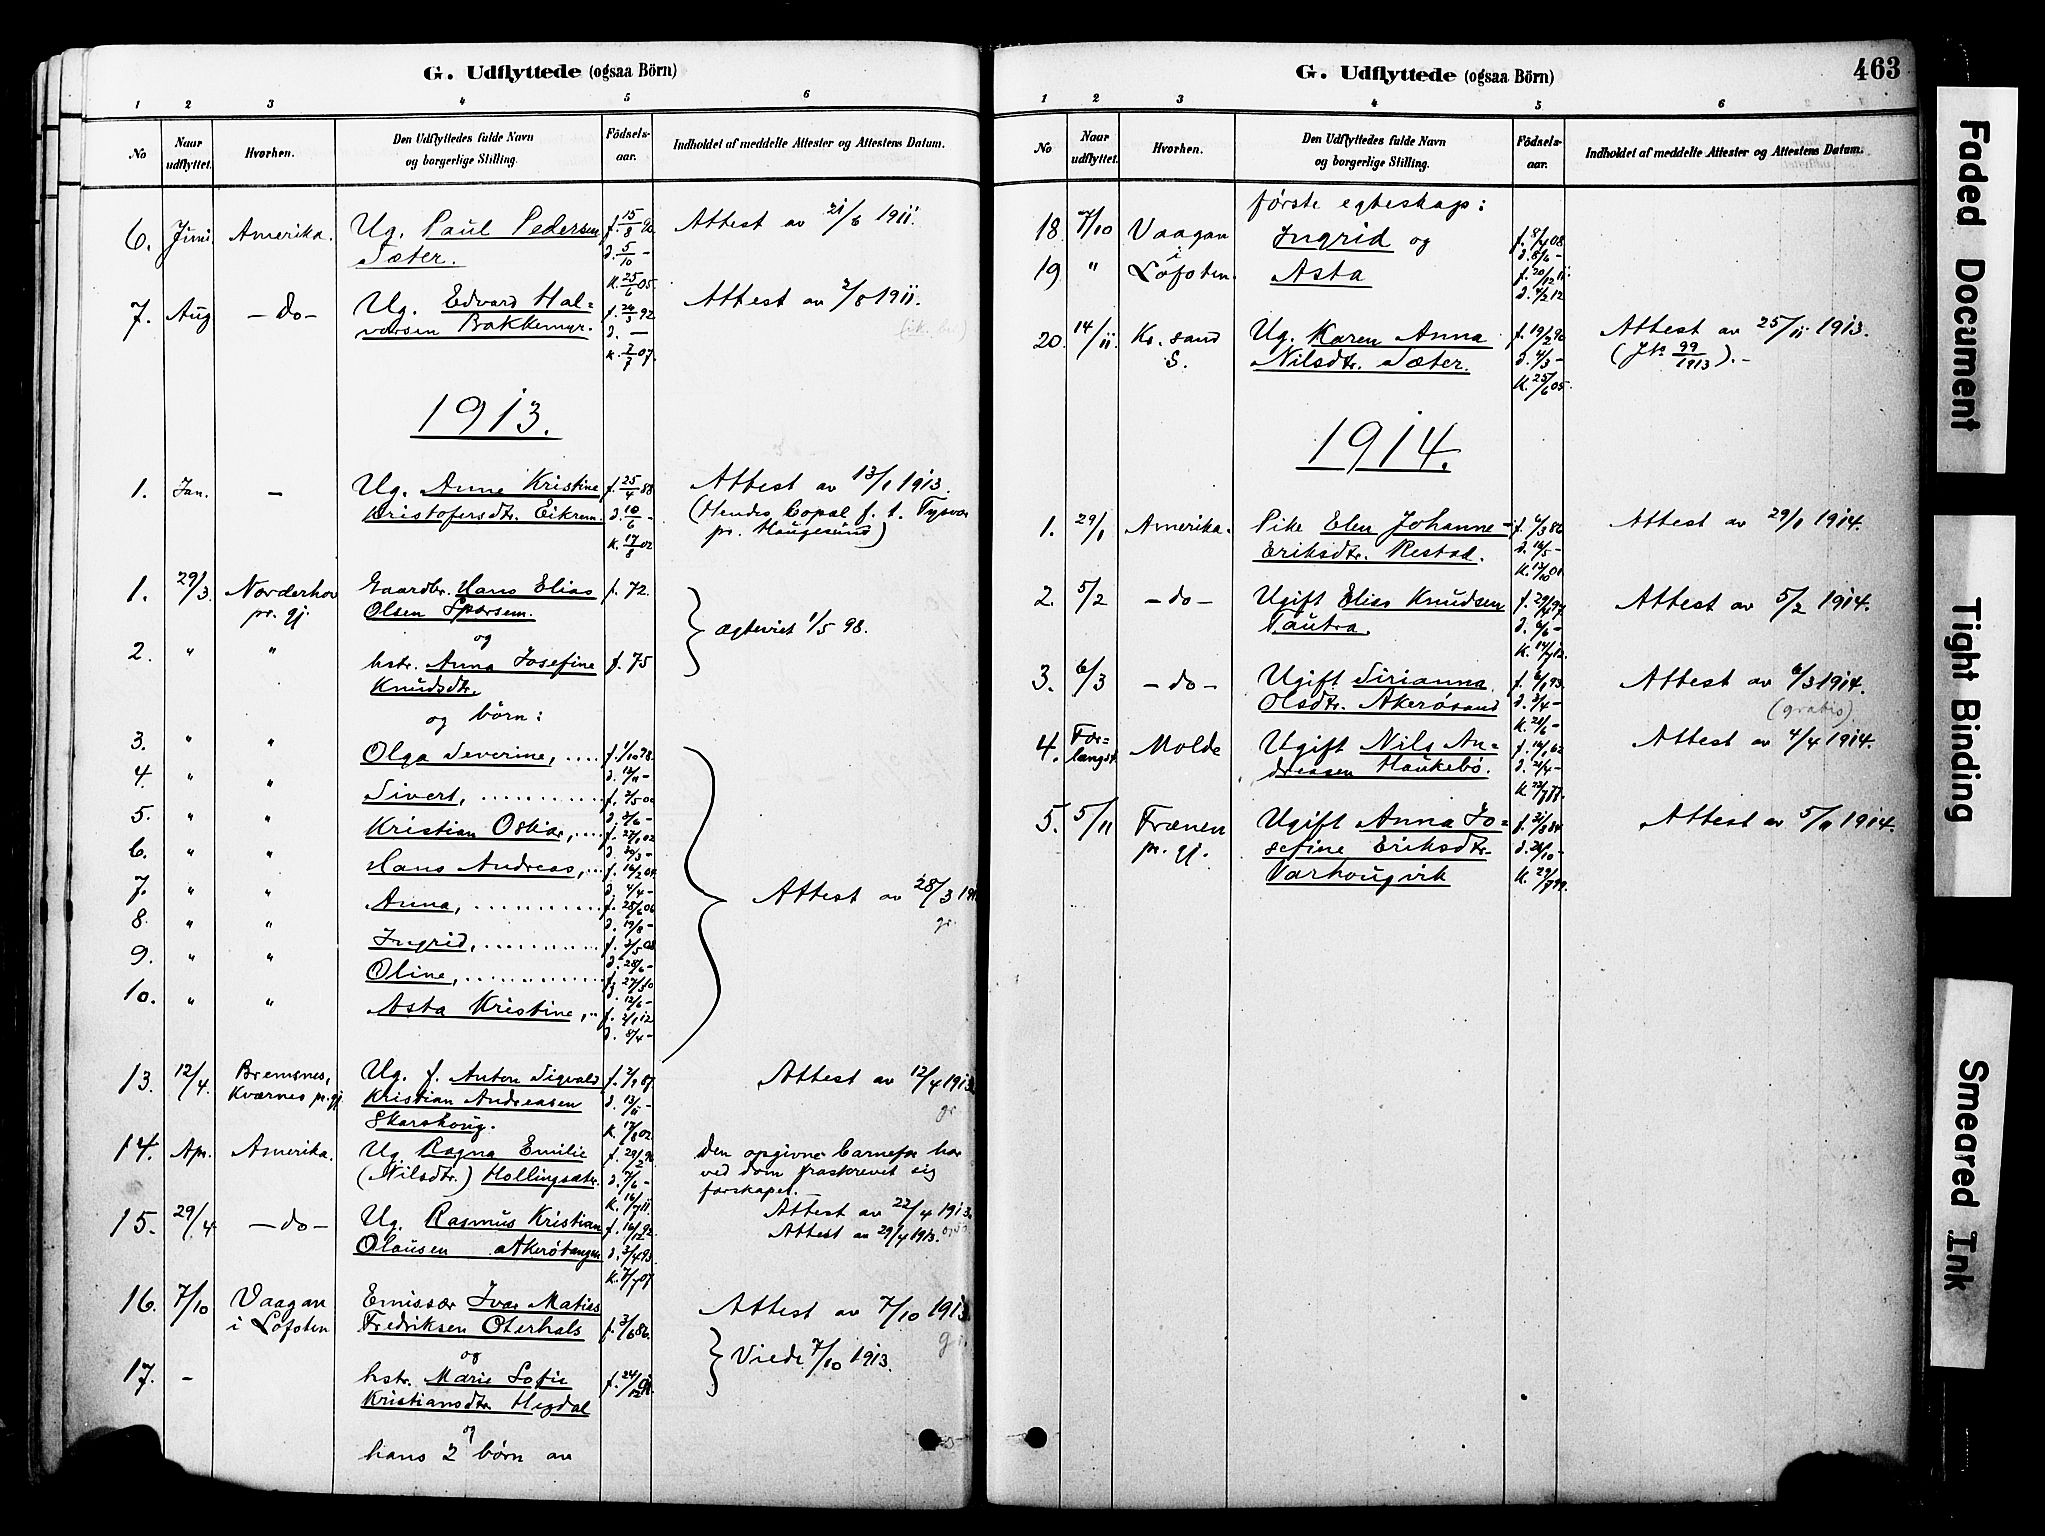 G. Udflyttede (ogsaa Börn)
1 2 3 4 5 6
No
Naar udflyttet.
Hvorhen.
Den Udflyttedes fulde Navn og borgerlige Stilling.
Födsels-aar.
Indholdet af meddelte Attester og Attestens Datum.
6. Juni Amerika. Ug. Paul Pedersen f. 15/8 Attest av 21/6 1911.
Sæter. d. 5/10 –
k. 25/6 05.
7. Aug – do – Ug. Edvard Hal- f. 26/3 92 Attest av 2/8 1911.
vorsen Bakkemyr. d. –
k. 2/7 07.
1913.
1. Jan. – Ug. Anne Kristine f. 25/4 88 Attest av 13/1 1913.
Kristofersdtr. Eikrem. d. 10/6 – (Hendes Copal f. t. Tysvær
k. 17/8 02 pr. Haugesund)
1. 29/3 Norderhov Gaardbr. Hans Elias f. 72.
pr. gj. Olsen Sporsem. ægteviet 1/5 98.
og
2. " " hstr. Anna Josefine f. 75
Knudsdtr.
og børn:
3. " " Olga Severine, .... f. 1/10 98.
d. 12/11 –
4. " " Sivert, ........... f. 2/5 00
d. 2/6 –
5. " " Kristian Oskar, .... f. 27/1 02
d. 29/3 –
6. " " Hans Andreas, .. f. 16/2 04.
d. 4/4 –
7. " " Anna, ............ f. 28/6 06 Attest av 28/3 191
d. 19/8 – gr.
8. " " Ingrid, .......... f. 3/5 08
d. 28/6 –
9. " " Oline, ............ f. 27/3 10
d. 12/6 –
10. " " Asta Kristine, .. f. 2/1 12
d. 8/4 –
13. 12/4 Bremsnes, Ug. f. Anton Sigvald f. 2/1 87 Attest av 12/4 1913
Kværnes pr. gj. Kristian Andreasen d. 13/11 – gr.
Skarshoug. k. 17/8 02.
14. Apr. Amerika. Ug. Ragna Emilie f. 29/2 96 Den opgivne barnefar har
(Nilsdtr.) Hollingsætr. d. 7/6 – ved dom fraskrevet sig
k. 16/7 11. farskapet.
Attest av 22/4 1913.
15. 29/4 – do – Ug. Rasmus Kristian f. 16/12 92. Attest av 29/4 1913.
Olausen Akerötangen d. 3/4 93.
k. 7/7 07
16. 7/10 Vaagan Emissær Ivar Matias Attest av 7/10 1913
i Lofoten Fredriksen Oterhals f. 3/6 86. gr.
og Viede 7/10 1913.
17. – hstr. Marie Sofie f. 24/12
Kristiansdtr. Hegdal
og
hans 2 börn av
G. Udflyttede (ogsaa Börn) 463
1 2 3 4 5 6
No
Naar udflyttet.
Hvorhen.
Den Udflyttedes fulde Navn og borgerlige Stilling.
Födsels-aar.
Indholdet af meddelte Attester og Attestens Datum.
første egteskap:
18. 7/10 Vaagan Ingrid og f. 8/4 08.
i d. 8/6 –
19 " Lofoten. Asta f. 20/12 11.
d. 4/2 12.
20. 14/11 Kr. sand Ug. Karen Anna f. 19/2 90 Attest av 25/11 1913.
S. Nilsdtr. Sæter. d. 4/3 – (JNo 99/1913). –
k. 25/6 05.
1914.
1. 29/1 Amerika. Pike Elen Johanne f. 4/3 86 Attest av 29/1 1914.
Eriksdtr. Restad. d. 16/5 –
k. 13/10 01.
2. 5/2 – do – Ugift Elias Knudsen f. 29/4 97 Attest av 5/2 1914.
Tautra. d. 6/6 –
k. 14/7 12.
3. 6/3 – do – Ugift Sirianna f. 6/1 93. Attest av 6/3 1914.
Olsdtr. Akerösand d. 3/4 – (gratis)
k. 28/6 –
4. For- Molde Ugift Nils An- f. 16/1 62 Attest av 4/4 1914.
længst. dreasen Haukebö. d. 21/4 –
5. 5/11 Frænen Ugift Anna Jo- f. 31/8 84 Attest av 5/11 1914.
pr. gj. sefine Eriksdtr. d. 26/10 –
Varhougvik k. 29/7 99.
Faded Document
Tight Binding
Smeared Ink